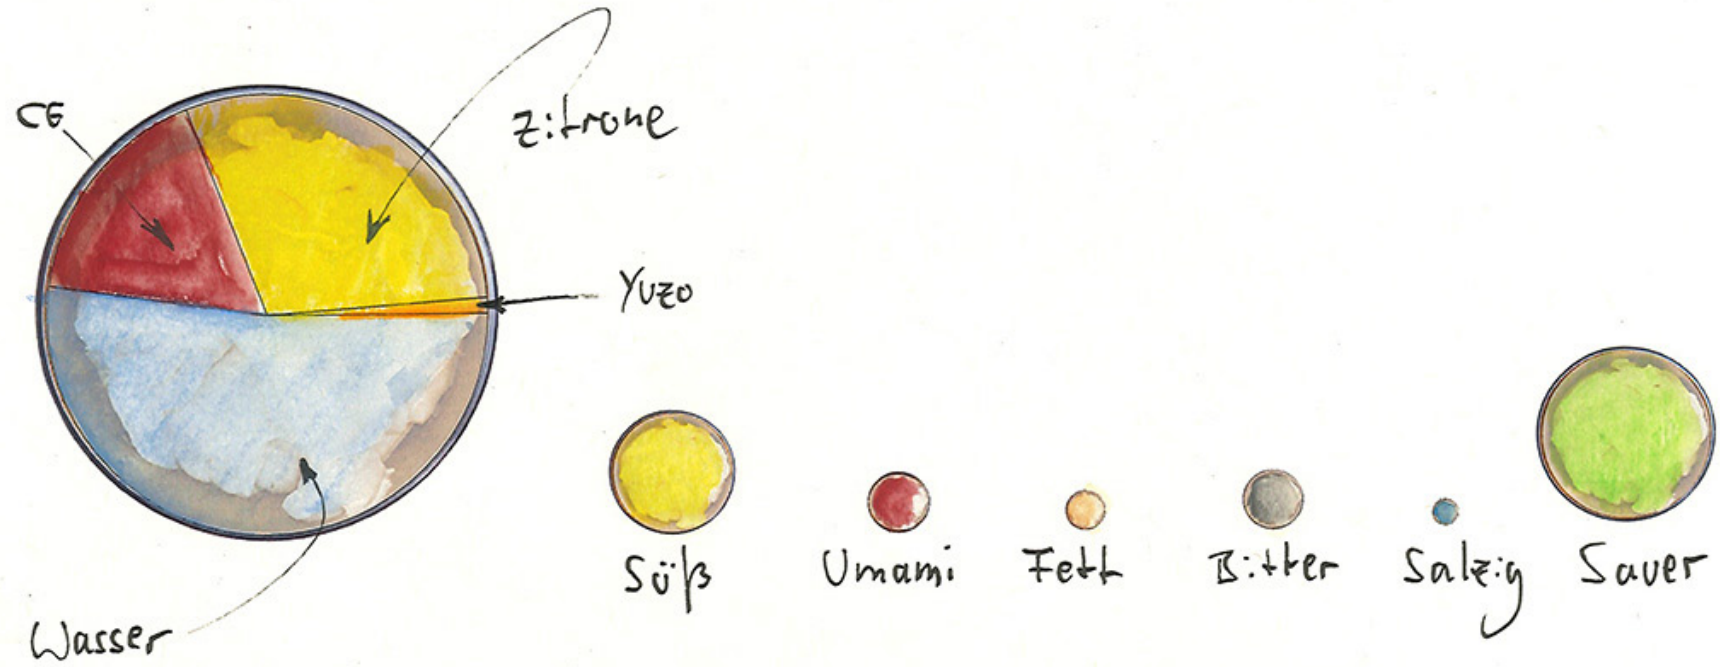 CE
Zitrone
Yuzo
Wasser
Süß
Umami
Fett
Bitter
Salzig
Sauer